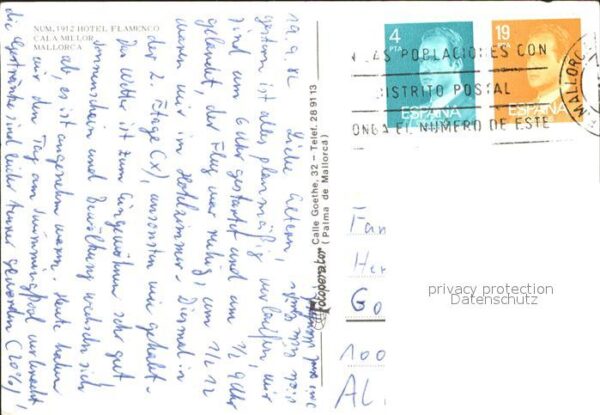 NUM. 1912 HOTEL FLAMENCO
CALA MILLOR
MALLORCA
19.9.82
Liebe Eltern!
gestern ist alles planmäßig verlaufen, wir
sind um 6 Uhr gestartet und um 1/2 9 Uhr
gelandet, der Flug war ruhig, um 1/2 12
waren wir im Hotelzimmer. Diesmal in
der 2. Etage (x), ansonsten wie gehabt.
Das Wetter ist zum Eingewöhnen sehr gut
Sonnenschein und Bewölkung wechseln sich
ab, es ist angenehm warm. Heute haben
wir den Tag am Swimmingpool verbracht
die Getränke sind leider teurer geworden (20%)!
Fotoperator Calle Goethe, 32 – Telef. 28 91 13
(Palma de Mallorca)
4
PTA
ESPAÑA
19
PTA
ESPAÑA
LAS POBLACIONES CON
DISTRITO POSTAL
PONGA EL NUMERO DE ESTE
MALLOR
Fan
Her
Go
100
AL
privacy protection
Datenschutz